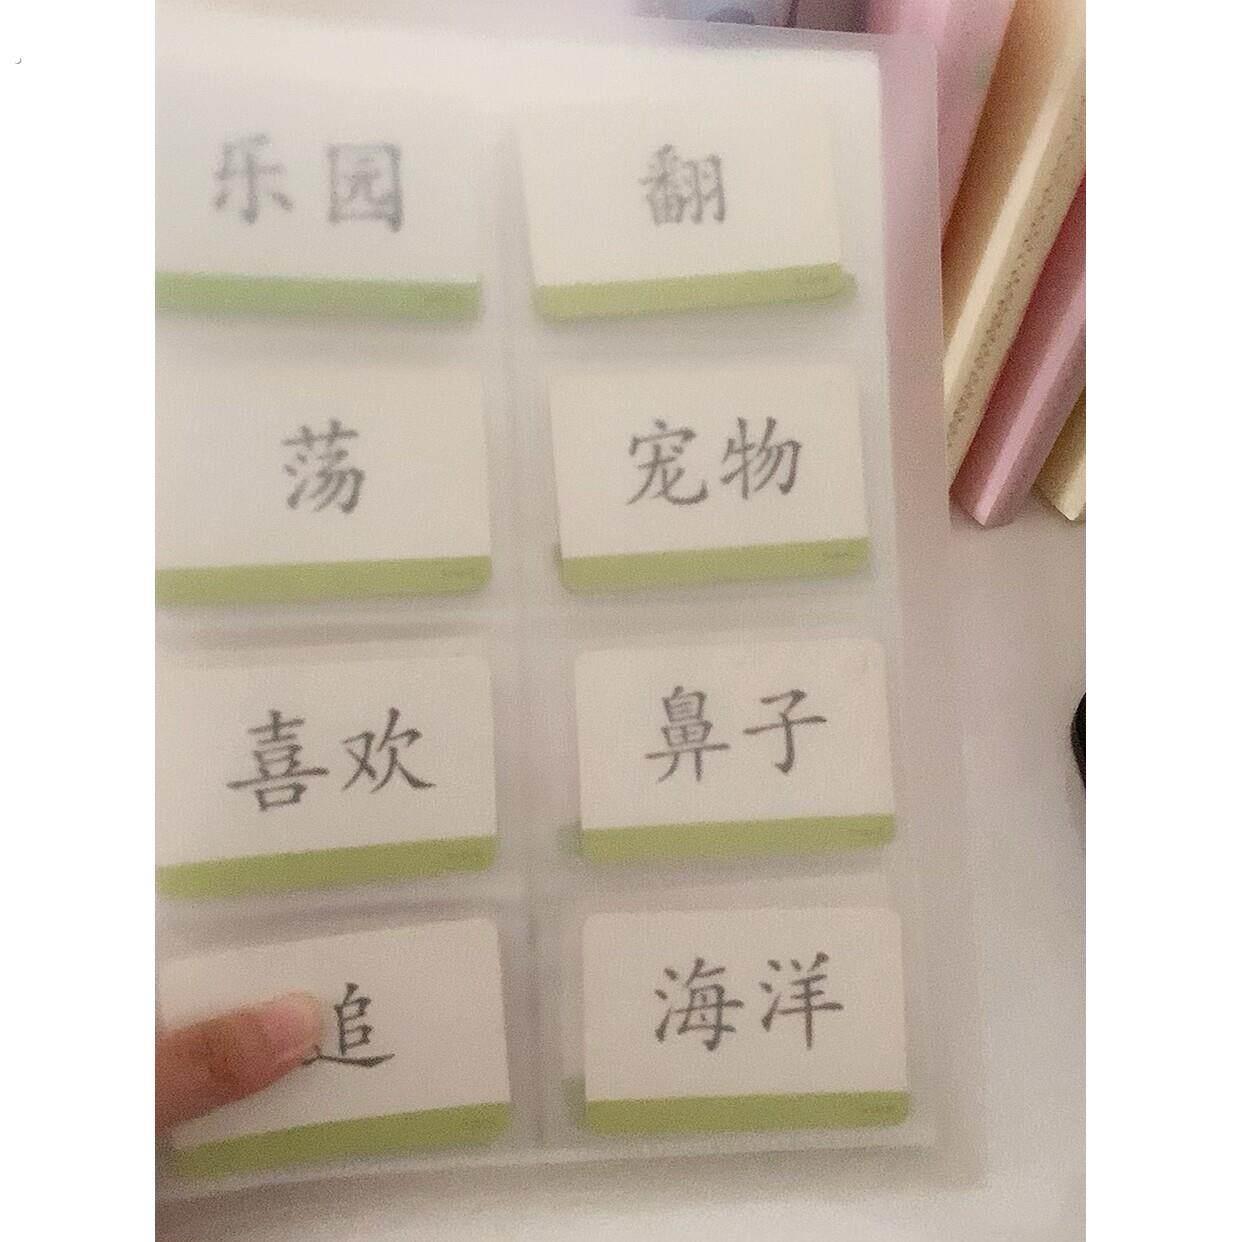 乐园
翻
荡
宠物
喜欢
鼻子
追
海洋